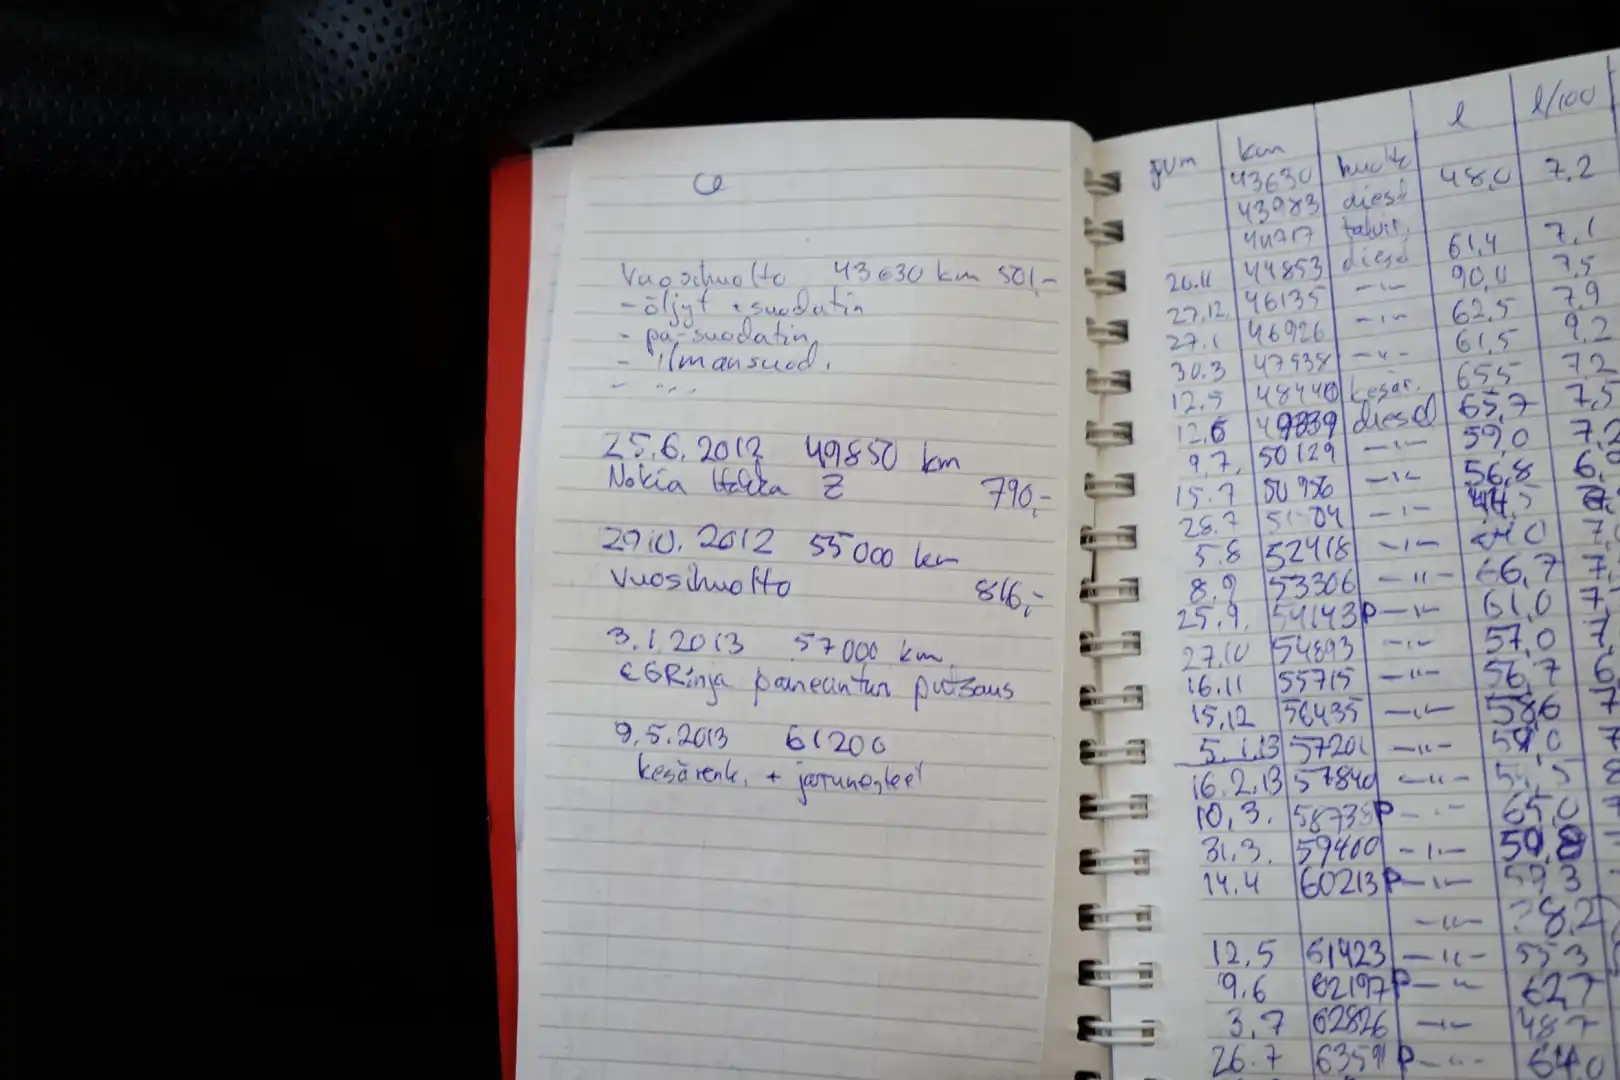 Vuosihuolto 43630 km 501,-
- öljyt + suodatin
- pa-suodatin
- ilmansuod.
- -"-
25.6.2012 49850 km
Nokia Hakka Z 790,-
29.10.2012 55000 km
Vuosihuolto 816,-
3.1.2013 57000 km
EGR:n ja paineanturin putsaus
9.5.2013 61200
kesärenk. + jarrunesteet
pvm km l l/100
43630 huolto 48,0 7,2
43983 diesel
44717 talvir. 61,4 7,1
26.11 44853 diesel 90,0 7,5
27.12. 46135 -"- 62,5 7,9
27.1 46926 -"- 61,5 9,2
30.3 47538 -"- 65,5 7,2
12.5 48440 kesär. 65,7 7,5
12.6 49839 diesel 59,0
9.7. 50129 -"- 56,8
15.7 50956 -"-
28.7 -"-
5.8 52418 -"-
8.9 53306 -"- 66,7
25.9. 54143 P -"- 61,0
27.10 54893 -"- 57,0
16.11 55715 -"- 56,7
15.12 56435 -"- 58,6
5.1.13 57201 -"-
16.2.13 57840 -"-
10.3. 58738 P -"- 65,0
31.3. 59400 -"- 59,8
14.4 60213 P -"- 59,3
-"- 8,2
12.5 61423 -"- 55,3
9.6 62197 P -"- 62,7
3.7 62826 -"- 48,7
26.7 63591 P -"- 64,0